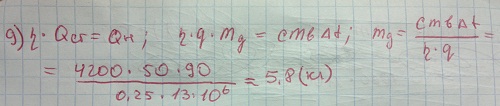 9) η · Qсг = Qн; η · q · mg = cmвΔt; mg = cmвΔt / η · q =
= 4200 · 50 · 90 / 0,25 · 13 · 10⁶ = 5,8 (кг)